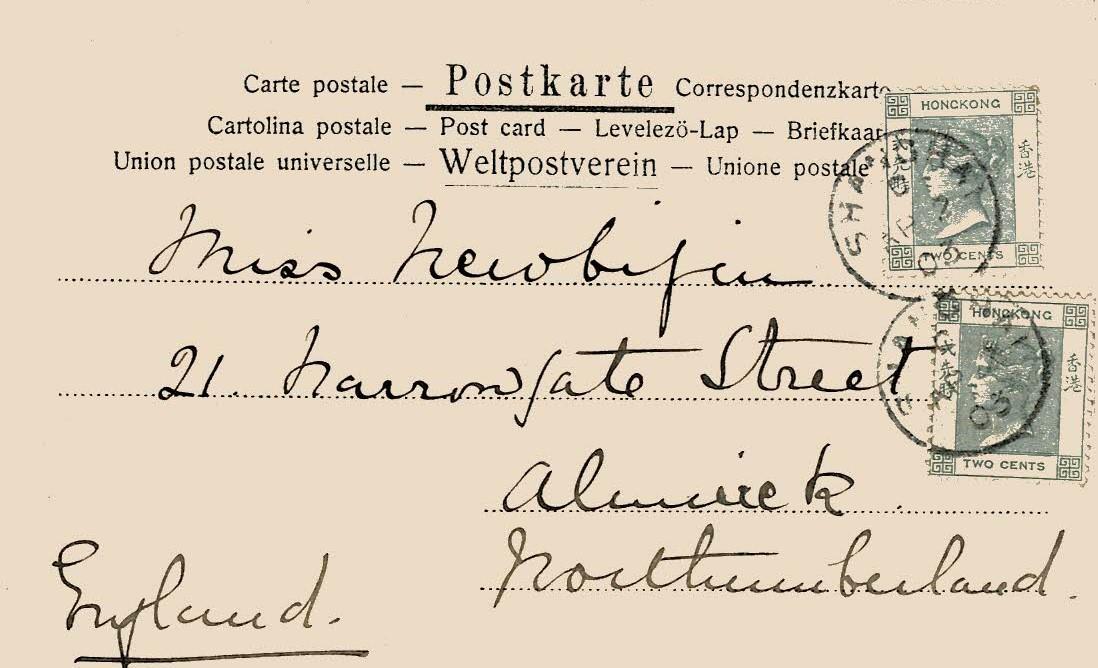 Carte postale — Postkarte Correspondenzkarte
Cartolina postale — Post card — Levelező-Lap — Briefkaar
Union postale universelle — Weltpostverein — Unione postale
HONGKONG
香港
TWO CENTS
SHANGHAI
Miss Newbigin
21. Narrowgate Street
Alnwick
Northumberland.
England.
HONGKONG
香港
TWO CENTS
SHANGHAI
03